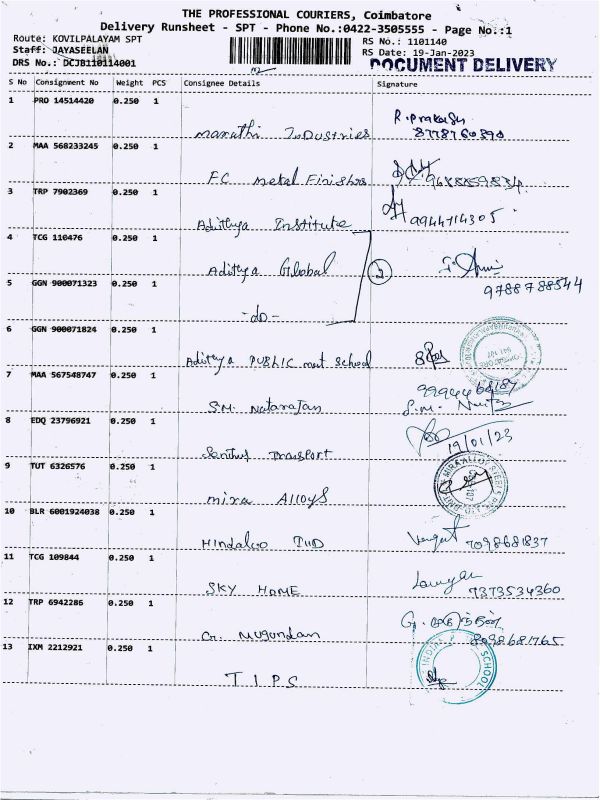 THE PROFESSIONAL COURIERS, Coimbatore
Delivery Runsheet - SPT - Phone No.:0422-3505555 - Page No.:1
Route: KOVILPALAYAM SPT
RS No.: 1101140
Staff: JAYASEELAN
RS Date: 19-Jan-2023
DRS No.: DCJB110114001
DOCUMENT DELIVERY
S No Consignment No Weight PCS Consignee Details Signature
1 PRO 14514420 0.250 1
Maruthi Industries R. Prakash
8778760390
2 MAA 568233245 0.250 1
F.C metal Finishers 9688859834
3 TRP 7902369 0.250 1
Adithya Institute 9944714305
4 TCG 110476 0.250 1
Adithya Global 2
5 GGN 900071323 0.250 1
9788788544
-do-
6 GGN 900071824 0.250 1
Adithya PUBLIC mat School
7 MAA 567548747 0.250 1
S.M. Natarajan
8 EDQ 23796921 0.250 1
19/01/23
Transport
9 TUT 6326576 0.250 1
mira Alloys
10 BLR 6001924038 0.250 1
Hindalco 7098681837
11 TCG 109844 0.250 1
SKY HOME 7373534360
12 TRP 6942286 0.250 1
G. Mugundan G.
8098681765
13 IXM 2212921 0.250 1
T.I.P.S
SCHOOL